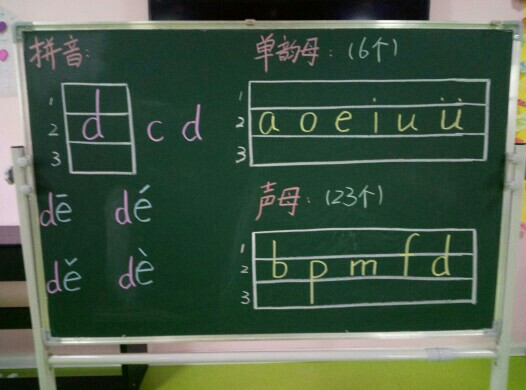 拼音:
1
2
3
d
c d
dē dé
dě dè
单韵母:(6个)
1
2
3
a o e i u ü
声母:(23个)
1
2
3
b p m f d